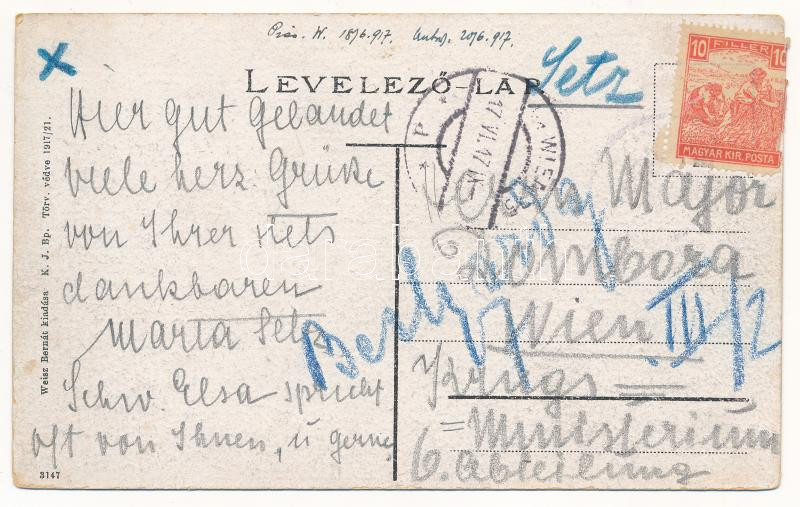 18/6.917. Antw. 20/6.917.
Setz
LEVELEZŐ-LAP
10 FILLÉR 10
MAGYAR KIR. POSTA
17 VI. 17
Hier gut Gelandet
viele herz. Grüße
von Ihrer stets
dankbaren
Marta Setz
Schw. Elsa spricht
oft von Ihnen, u gerne
Major
Dombora
Wien III/2
Kriegs =
= Ministerium
6. Abteilung
Weisz Bernát kiadása K. J. Bp. Törv. védve 1917/21.
3147